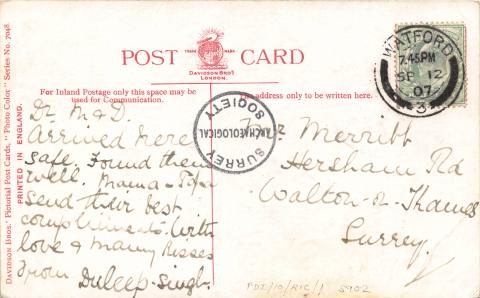 POST CARD
TRADE MARK
DAVIDSON BROS.
LONDON.
For Inland Postage only this space may be
used for Communication.
The address only to be written here.
DAVIDSON BROS.' Pictorial Post Cards, "Photo Color" Series No. 7048.
PRINTED IN ENGLAND.
WATFORD
7.45PM
SP 12
07
3
SURREY ARCHAEOLOGICAL SOCIETY
Dr M & D.
Arrived here
safe. Found them
well. Mama & Papa
send their best
compliments. With
love & many kisses
from Duleep-Singh.
Merritt
Hersham Rd
Walton-o-Thames
Surrey.
PDT/10/RIC/1 5902